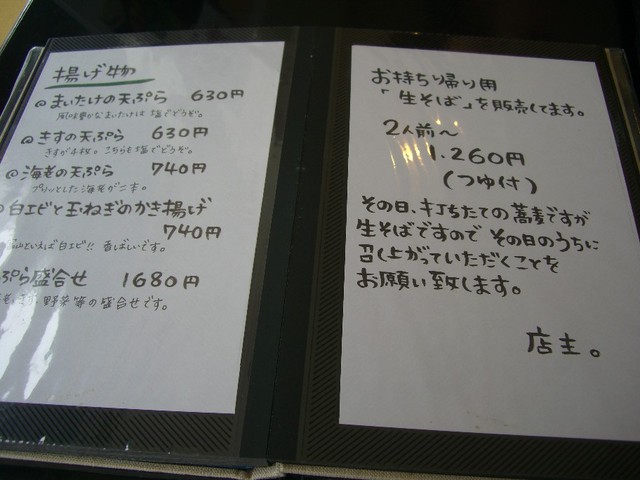 揚げ物
◎まいたけの天ぷら 630円
風味豊かなまいたけは塩でどうぞ。
◎きすの天ぷら 630円
きすが4枚。こちらも塩でどうぞ。
◎海老の天ぷら 740円
プリッとした海老が二本。
白エビと玉ねぎのかき揚げ
740円
といえば白エビ!! 香ばしいです。
ぷら盛合せ 1680円
野菜等の盛合せです。
お持ち帰り用
「生そば」を販売してます。
2人前~
1.260円
(つゆ付)
その日、打ちたての蕎麦ですが
生そばですので その日のうちに
召し上がっていただくことを
お願い致します。
店主。